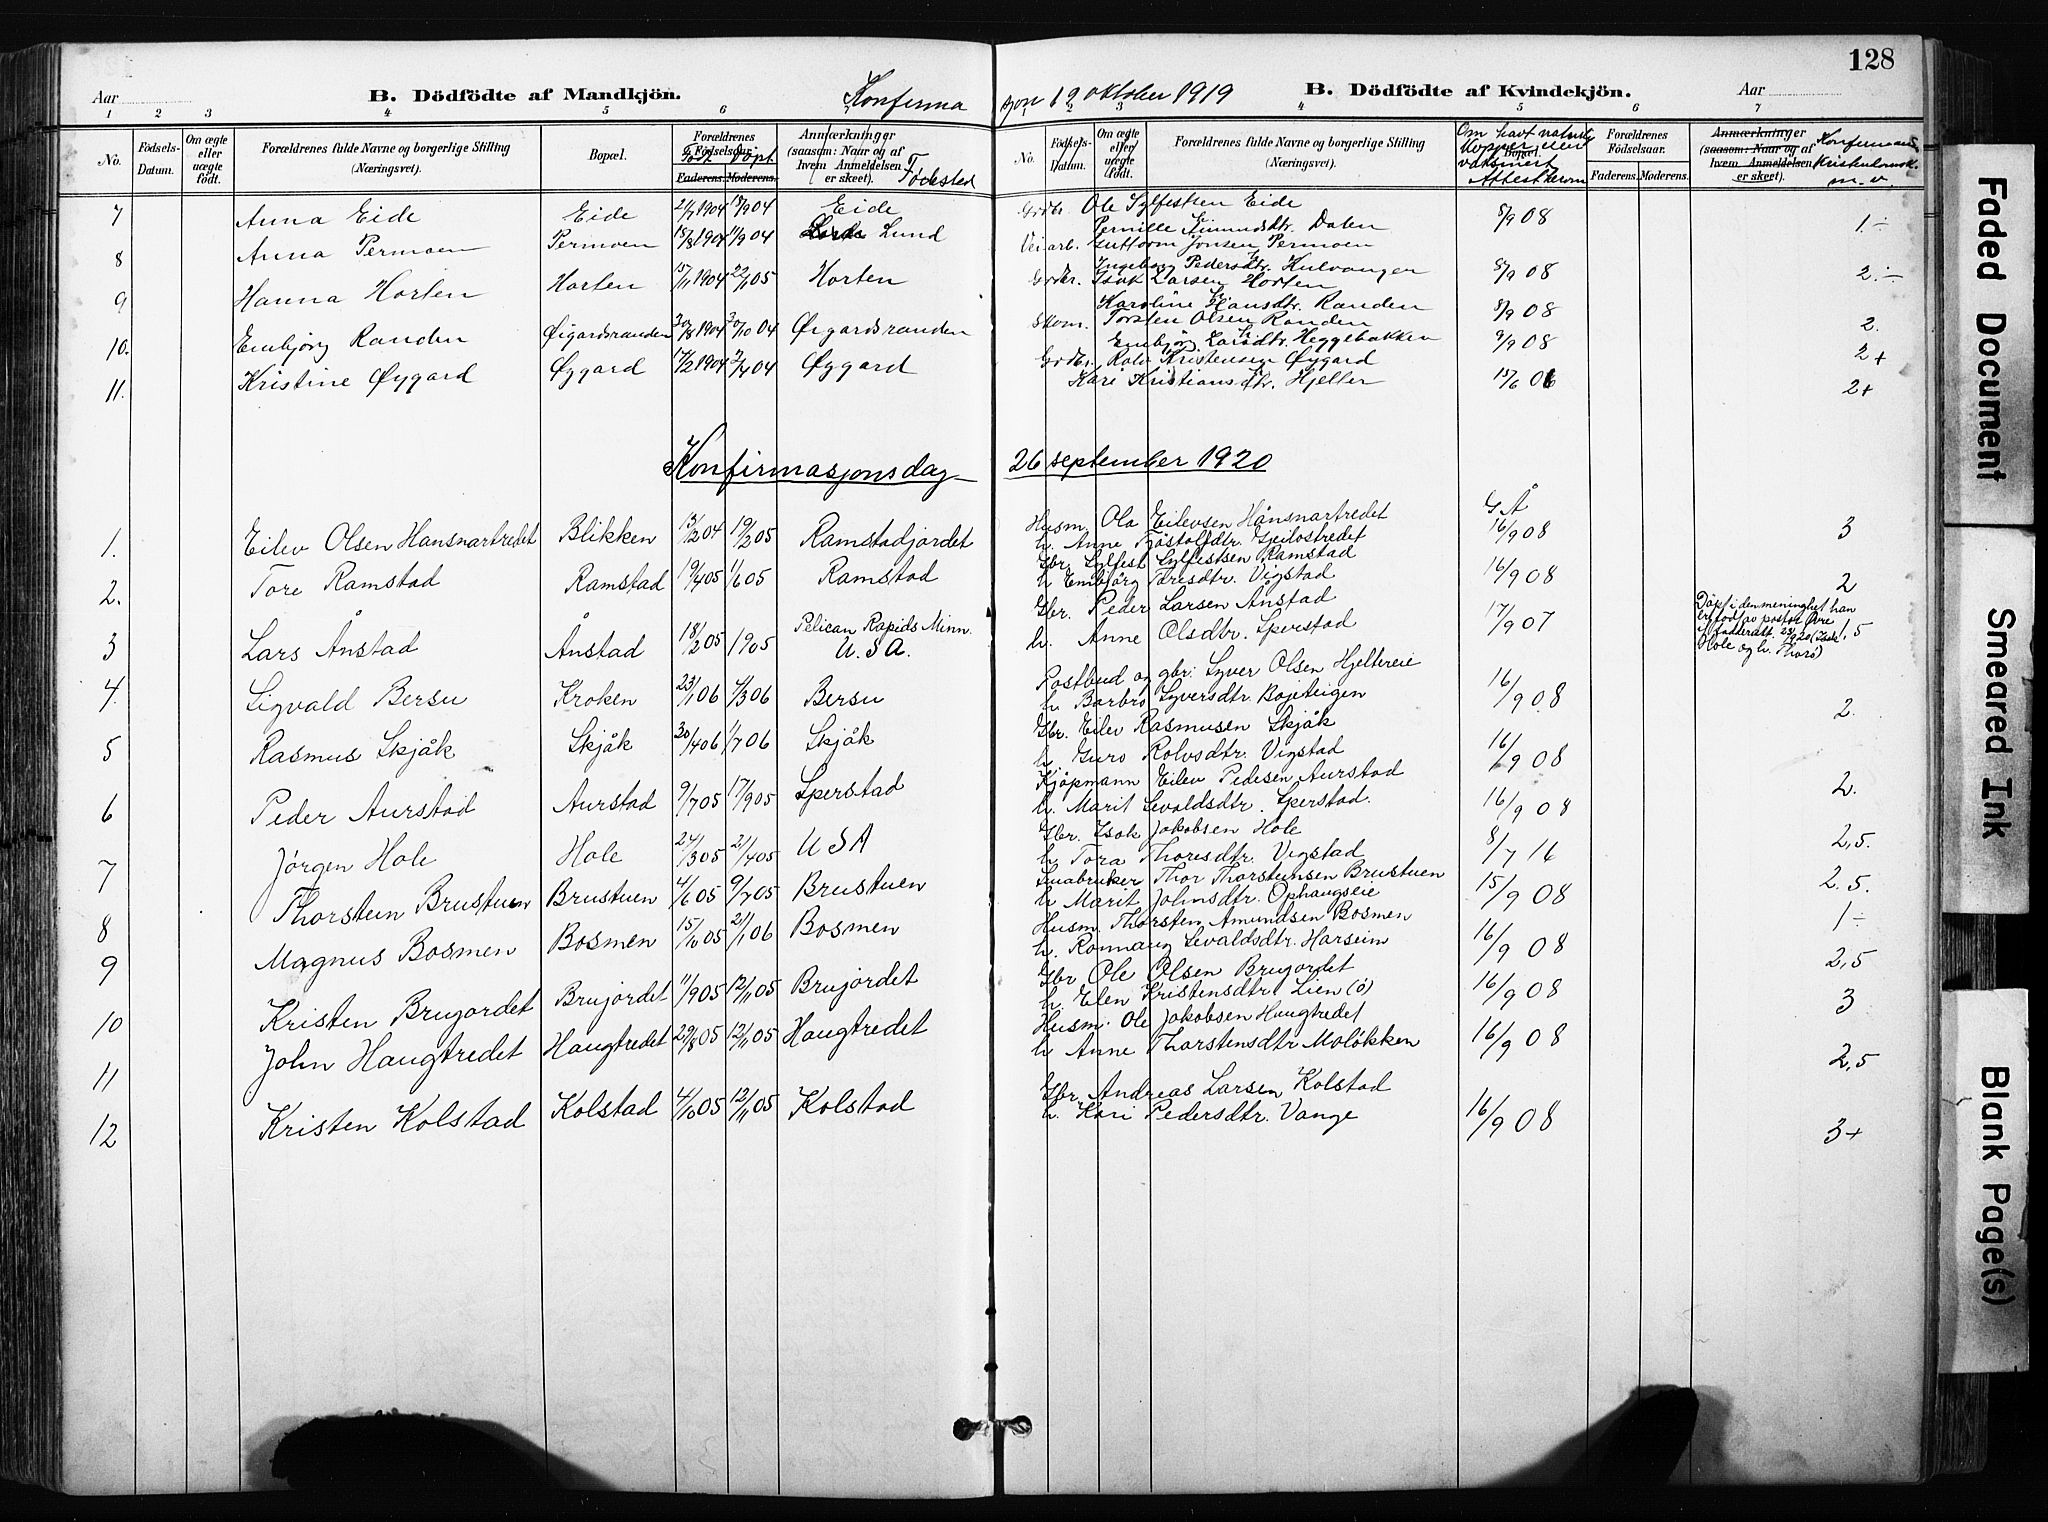 128
Aar
B. Dödfödte af Mandkjön.
Konfirma
sjon 12 oktober 1919
B. Dödfödte af Kvindekjön.
Aar
1 2 3 4 5 6 7
1 2 3 4 5 6 7
No. Födsels-Datum. Om ægte eller uægte födt. Forældrenes fulde Navne og borgerlige Stilling (Næringsvei). Bopæl. Forældrenes Födselsaar. Faderens. Moderens. Anmærkninger (saasom: Naar og af hvem Anmeldelsen er skeet).
Født Døpt Fødested
No. Födsels-Datum. Om ægte eller uægte födt. Forældrenes fulde Navne og borgerlige Stilling (Næringsvei). Bopæl. Forældrenes Födselsaar. Faderens. Moderens. Anmærkninger (saasom: Naar og af hvem Anmeldelsen er skeet).
Om havt naturl. kopper eller vaksinert Attest derom
m. v.
7 Anna Eide Eide 2/7 1904 18/9 04 Eide Grdbr. Ole Sylfestsen Eide 8/9 08 1÷
Pernille Amundsdtr. Dalen
8 Anna Permoen Permoen 15/8 1904 11/9 04 Lund Veiarb. Guttorm Jonsen Permoen
Ingeborg Pedersdtr. Hulvangen 8/9 08 2÷
9 Hanna Horten Horten 15/11 1904 22/1 05 Horten Grdbr. Isak Larsen Horten
Karoline Hansdtr. Randen 8/9 08 2.
10. Embjörg Randen Øigardsranden 30/8 1904 30/10 04 Øigardsranden Skom. Torsten Olsen Randen
Embjörg Larsdtr. Heggebakken 9/9 08 2+
11. Kristine Øygard Øygard 17/2 1904 2/4 04 Øygard Grdbr. Rolv Kristensen Øygard
Kari Kristiansdtr. Hjeller 15/6 06 2+
Konfirmasjonsdag 26 september 1920
G Å
1. Eilev Olsen Hansnartredet Blikken 13/2 04 19/2 05 Ramstadjordet Husm. Ola Eilevsen Hånsnartredet 16/9 08 3
h. Anne Tostolfdtr. Geilostredet
2. Tore Ramstad Ramstad 19/4 05 11/6 05 Ramstad Gbr. Sylfest Sylfestsen Ramstad
h Embjörg Toresdtr. Vigstad 16/9 08 2
3 Lars Ånstad Ånstad 18/2 05 1905 Pelican Rapids Minn. U.S.A. Gbr. Peder Larsen Ånstad
h. Anne Olsdtr. Sperstad 17/9 07 1,5
Döpt i den meninghet han
4. Sigvald Bersu Kroken 23/1 06 4/3 06 Bersu Postbud og gbr. Syver Olsen Hjeltereie
h Barbro Syversdtr. Bojeteigen 16/9 08 2.
5 Rasmus Skjåk Skjåk 30/4 06 1/7 06 Skjåk Gbr. Eilev Rasmusen Skjåk
h Guro Rolvsdtr. Vigstad 16/9 08 2.
6 Peder Aurstad Aurstad 9/7 05 17/9 05 Sperstad Kjöpmann Eilev Pedersen Aurstad
h. Marit Sevaldsdtr. Sperstad. 16/9 08 2,5.
7 Jörgen Hole Hole 24/3 05 21/4 05 USA Gbr. Isak Jakobsen Hole
h. Tora Thoresdtr. Vigstad 8/7 16 2.5.
8 Thorstein Brustuen Brustuen 4/6 05 9/7 05 Brustuen Småbruker Thor Thorsteinsen Brustuen
h Marit Johnsdtr. Ophaugseie 15/9 08 1÷
9 Magnus Bosmen Bosmen 15/10 05 21/1 06 Bosmen Husm. Thorsten Amundsen Bosmen
h. Rönnaug Sevaldsdtr. Harseim 16/9 08 2,5
10 Kristen Brujordet Brujordet 11/9 05 12/11 05 Brujordet Gbr Ole Olsen Brujordet
h Elen Kristensdtr. Lien (ö) 16/9 08 3
11 John Haugtredet Haugtredet 29/8 05 12/11 05 Haugtredet Husm. Ole Jakobsen Haugtredet
h Anne Thorstensdtr Molökken 16/9 08 2,5
12 Kristen Kolstad Kolstad 4/10 05 12/11 05 Kolstad Gbr. Andreas Larsen Kolstad
h. Kari Pedersdtr. Vange 16/9 08 3+
Faded Document
Smeared Ink
Blank Page(s)